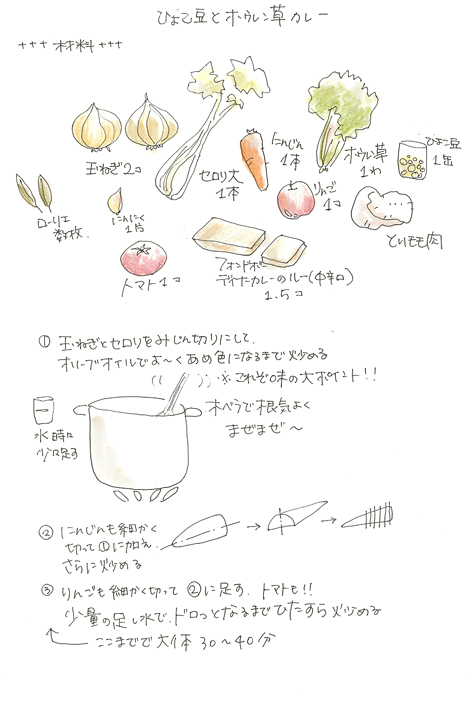 ひよこ豆とホウレン草カレー
+++ 材料 +++
玉ねぎ2コ
セロリ大
1本
にんじん
1本
ホウレン草
1わ
ひよこ豆
1缶
ローリエ
数枚
にんにく
1片
トマト1コ
りんご
1コ
とりモモ肉
フォンドボー
ディナーカレーのルー(中辛口)
1.5コ
① 玉ねぎとセロリをみじん切りにして、
オリーブオイルでよ～くあめ色になるまで炒める
※これぞ味の大ポイント!!
木ベラで根気よく
まぜまぜ～
水 時々
少々足す
② にんじんも細かく
切って①に加え、
さらに炒める
③ りんごも細かく切って ②に足す。トマトも!!
少量の足し水で、ドロっとなるまでひたすら炒める
ここまでで大体 30～40分